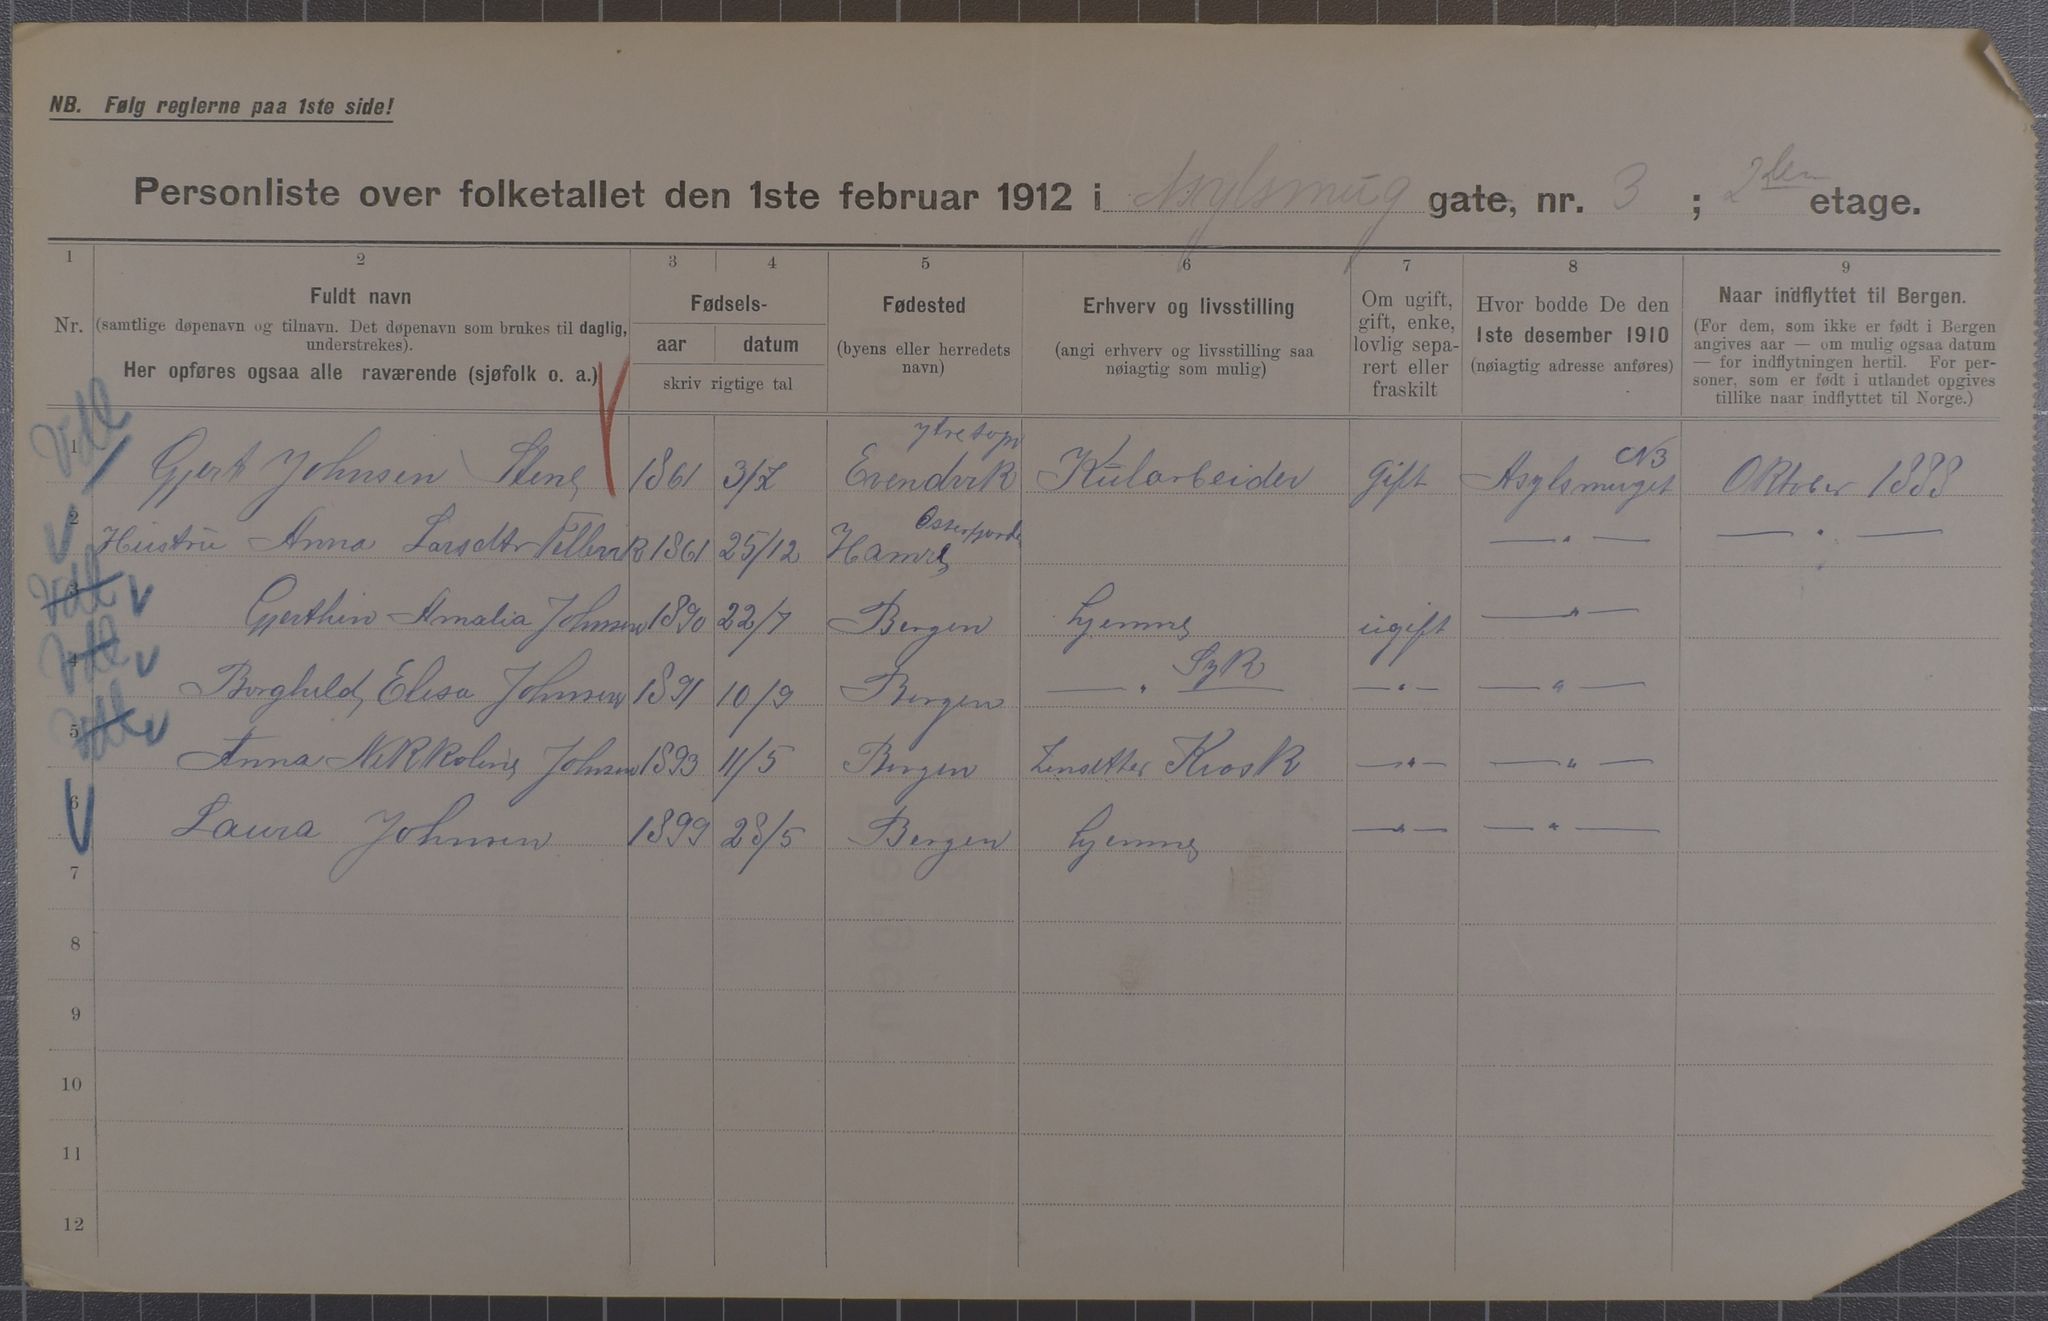 NB. Følg reglerne paa 1ste side!
Personliste over folketallet den 1ste februar 1912 i Asylsmug gate, nr. 3 ; 2den etage.
1 2 3 4 5 6 7 8 9
Nr.
Fuldt navn
(samtlige døpenavn og tilnavn. Det døpenavn som brukes til daglig, understrekes).
Her opføres ogsaa alle raværende (sjøfolk o. a.)
Fødsels-
aar datum
skriv rigtige tal
Fødested
(byens eller herredets navn)
Erhverv og livsstilling
(angi erhverv og livsstilling saa nøiagtig som mulig)
Om ugift, gift, enke, lovlig separert eller fraskilt
Hvor bodde De den
1ste desember 1910
(nøiagtig adresse anføres)
Naar indflyttet til Bergen.
(For dem, som ikke er født i Bergen angives aar — om mulig ogsaa datum — for indflytningen hertil. For personer, som er født i utlandet opgives tillike naar indflyttet til Norge.)
1 Gjert Johnsen Stene 1861 3/7 Evendvik Kularbeider gift Asylsmuget N3 Oktober 1888
2 Hustru Anna Larsdtr 1861 25/12 Hamre Osterfjorde —"— —"—
3 Gjerthin Amalia Johnsen 1890 22/7 Bergen hjemme ugift —"—
4 Borghild Elisa Johnsen 1891 10/9 Bergen —"— Syk —"— —"—
5 Anna Nikkoline Johnsen 1893 11/5 Bergen Kiosk —"— —"—
6 Laura Johnsen 1899 28/5 Bergen hjemme —"— —"—
7
8
9
10
11
12